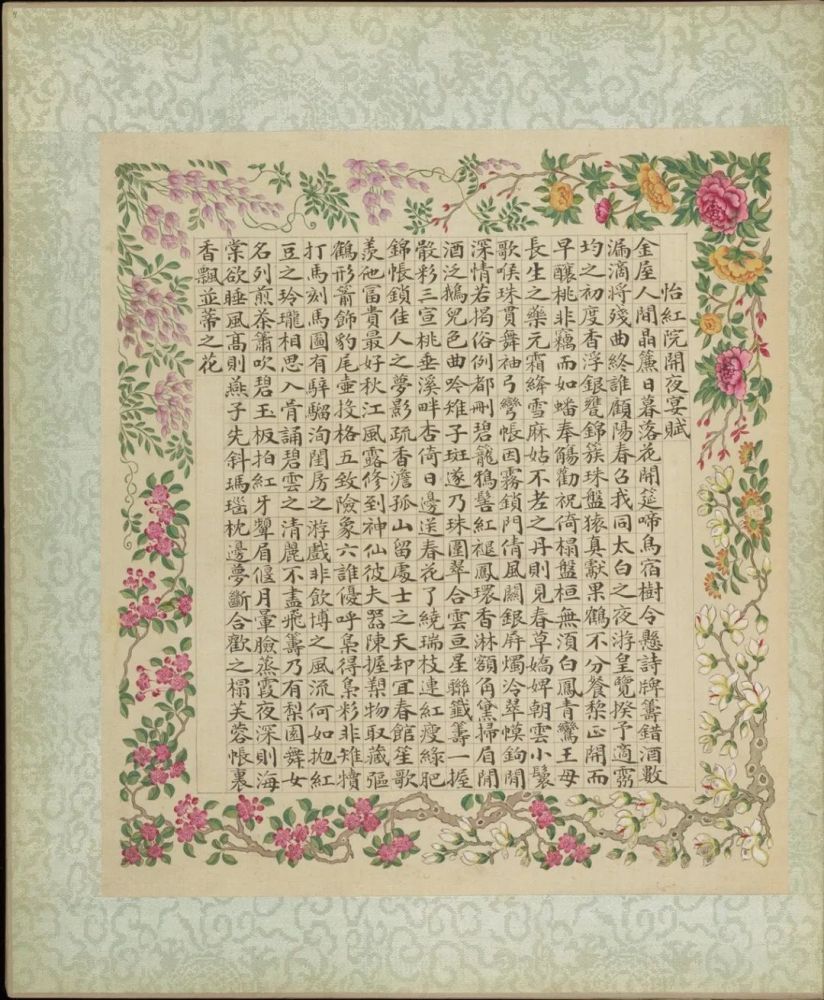 怡紅院開夜宴賦
金屋人閒晶簾日暮落花開筵啼鳥宿樹令懸詩牌籌錯酒數
漏滴將殘曲終誰顧陽春召我同太白之夜游皇覽揆予適霛
均之初度香浮銀甕錦簇珠盤猿真獻果鶴不分餐黎正開而
早釀桃非竊而如蟠奉觴勸祝倚榻盤桓無須白鳳青鸞王母
長生之藥元霜絳雪麻姑不老之丹則見春草嬌婢朝雲小鬟
歌喉珠貫舞袖弓彎帳因霧鎖門倩風關銀屏燭冷翠幙鉤閒
深情若揭俗例都刪碧籠鴉髻紅褪鳳環香淋額角黛掃眉間
酒泛鵝兒色曲吟雉子斑遂乃珠圍翠合雲亘星聯籤籌一握
骰彩三宣桃垂溪畔杏倚日邊送春花了繞瑞枝連紅瘦綠肥
錦帳鎖佳人之夢影疏香澹孤山留處士之天却宜春館笙歌
羨他富貴最好秋江風露修到神仙彼夫器陳握槊物取藏彄
鶴形箭飾豹尾壷投格五致險象六誰優呼梟得梟彩非雉犢
打馬刻馬圖有騂騮洵閨房之游戲非飲博之風流何如拋紅
豆之玲瓏相思入骨誦碧雲之清麗不盡飛籌乃有梨園舞女
名列煎茶簫吹碧玉板拍紅牙顰眉偃月暈臉蒸霞夜深則海
棠欲睡風髙則燕子先斜瑪瑙枕邊夢斷合歡之榻芙蓉帳裏
香飄並蒂之花